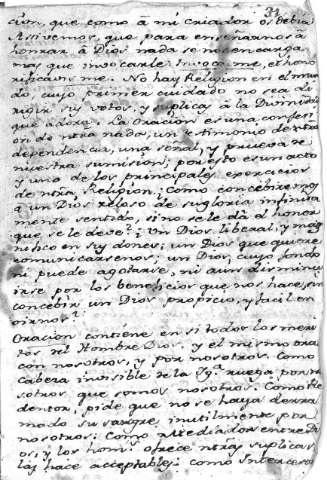 31
cion, que como à mi criador os debia
Assivemos, que para enseñarnos à
honrrar à Dios nada se nos encarga
mas que invocarle. Invoca me, et hono
rificavis me. No hay Religion en el mun
do, cuyo primer cuidado no sea di
rigir sus votos, y suplicas à la Divinidad
que adora. La Oracion es una confesi
on de ntra nada, un testimonio de ntra
dependencia, una señal, y prueva de
nuestra sumision; por esto es un acto
y uno de los principales exercicios
de ntra Religion. Como concebiremos
à un Dios zeloso de su gloria infinita
mente sentido, si no se le dà el honor
que se le deve?; Un Dios liberal, y mag
nifico en sus dones; un Dios que quiere
comunicarsenos; un Dios, cuyo fondo
ni puede agotarse, ni aun disminu
irse por los beneficios que nos hace, sin
concebir un Dios propicio, y facil en
oirnos?
Oracion contiene en si todos los meri
tos del Hombre Dios, y el mismo ora
con nosotros, y por nosotros. Como
Cabeza invisible de la Yga. ruega por no
sotros que somos nosotros. Como Re
dentor, pide que no se haya derra
mado su sangre inutilmente por
nosotros. Como Mediador entre Di
os, y los homs. ofrece ntras suplicas
las hace acceptables. Como Intercesor